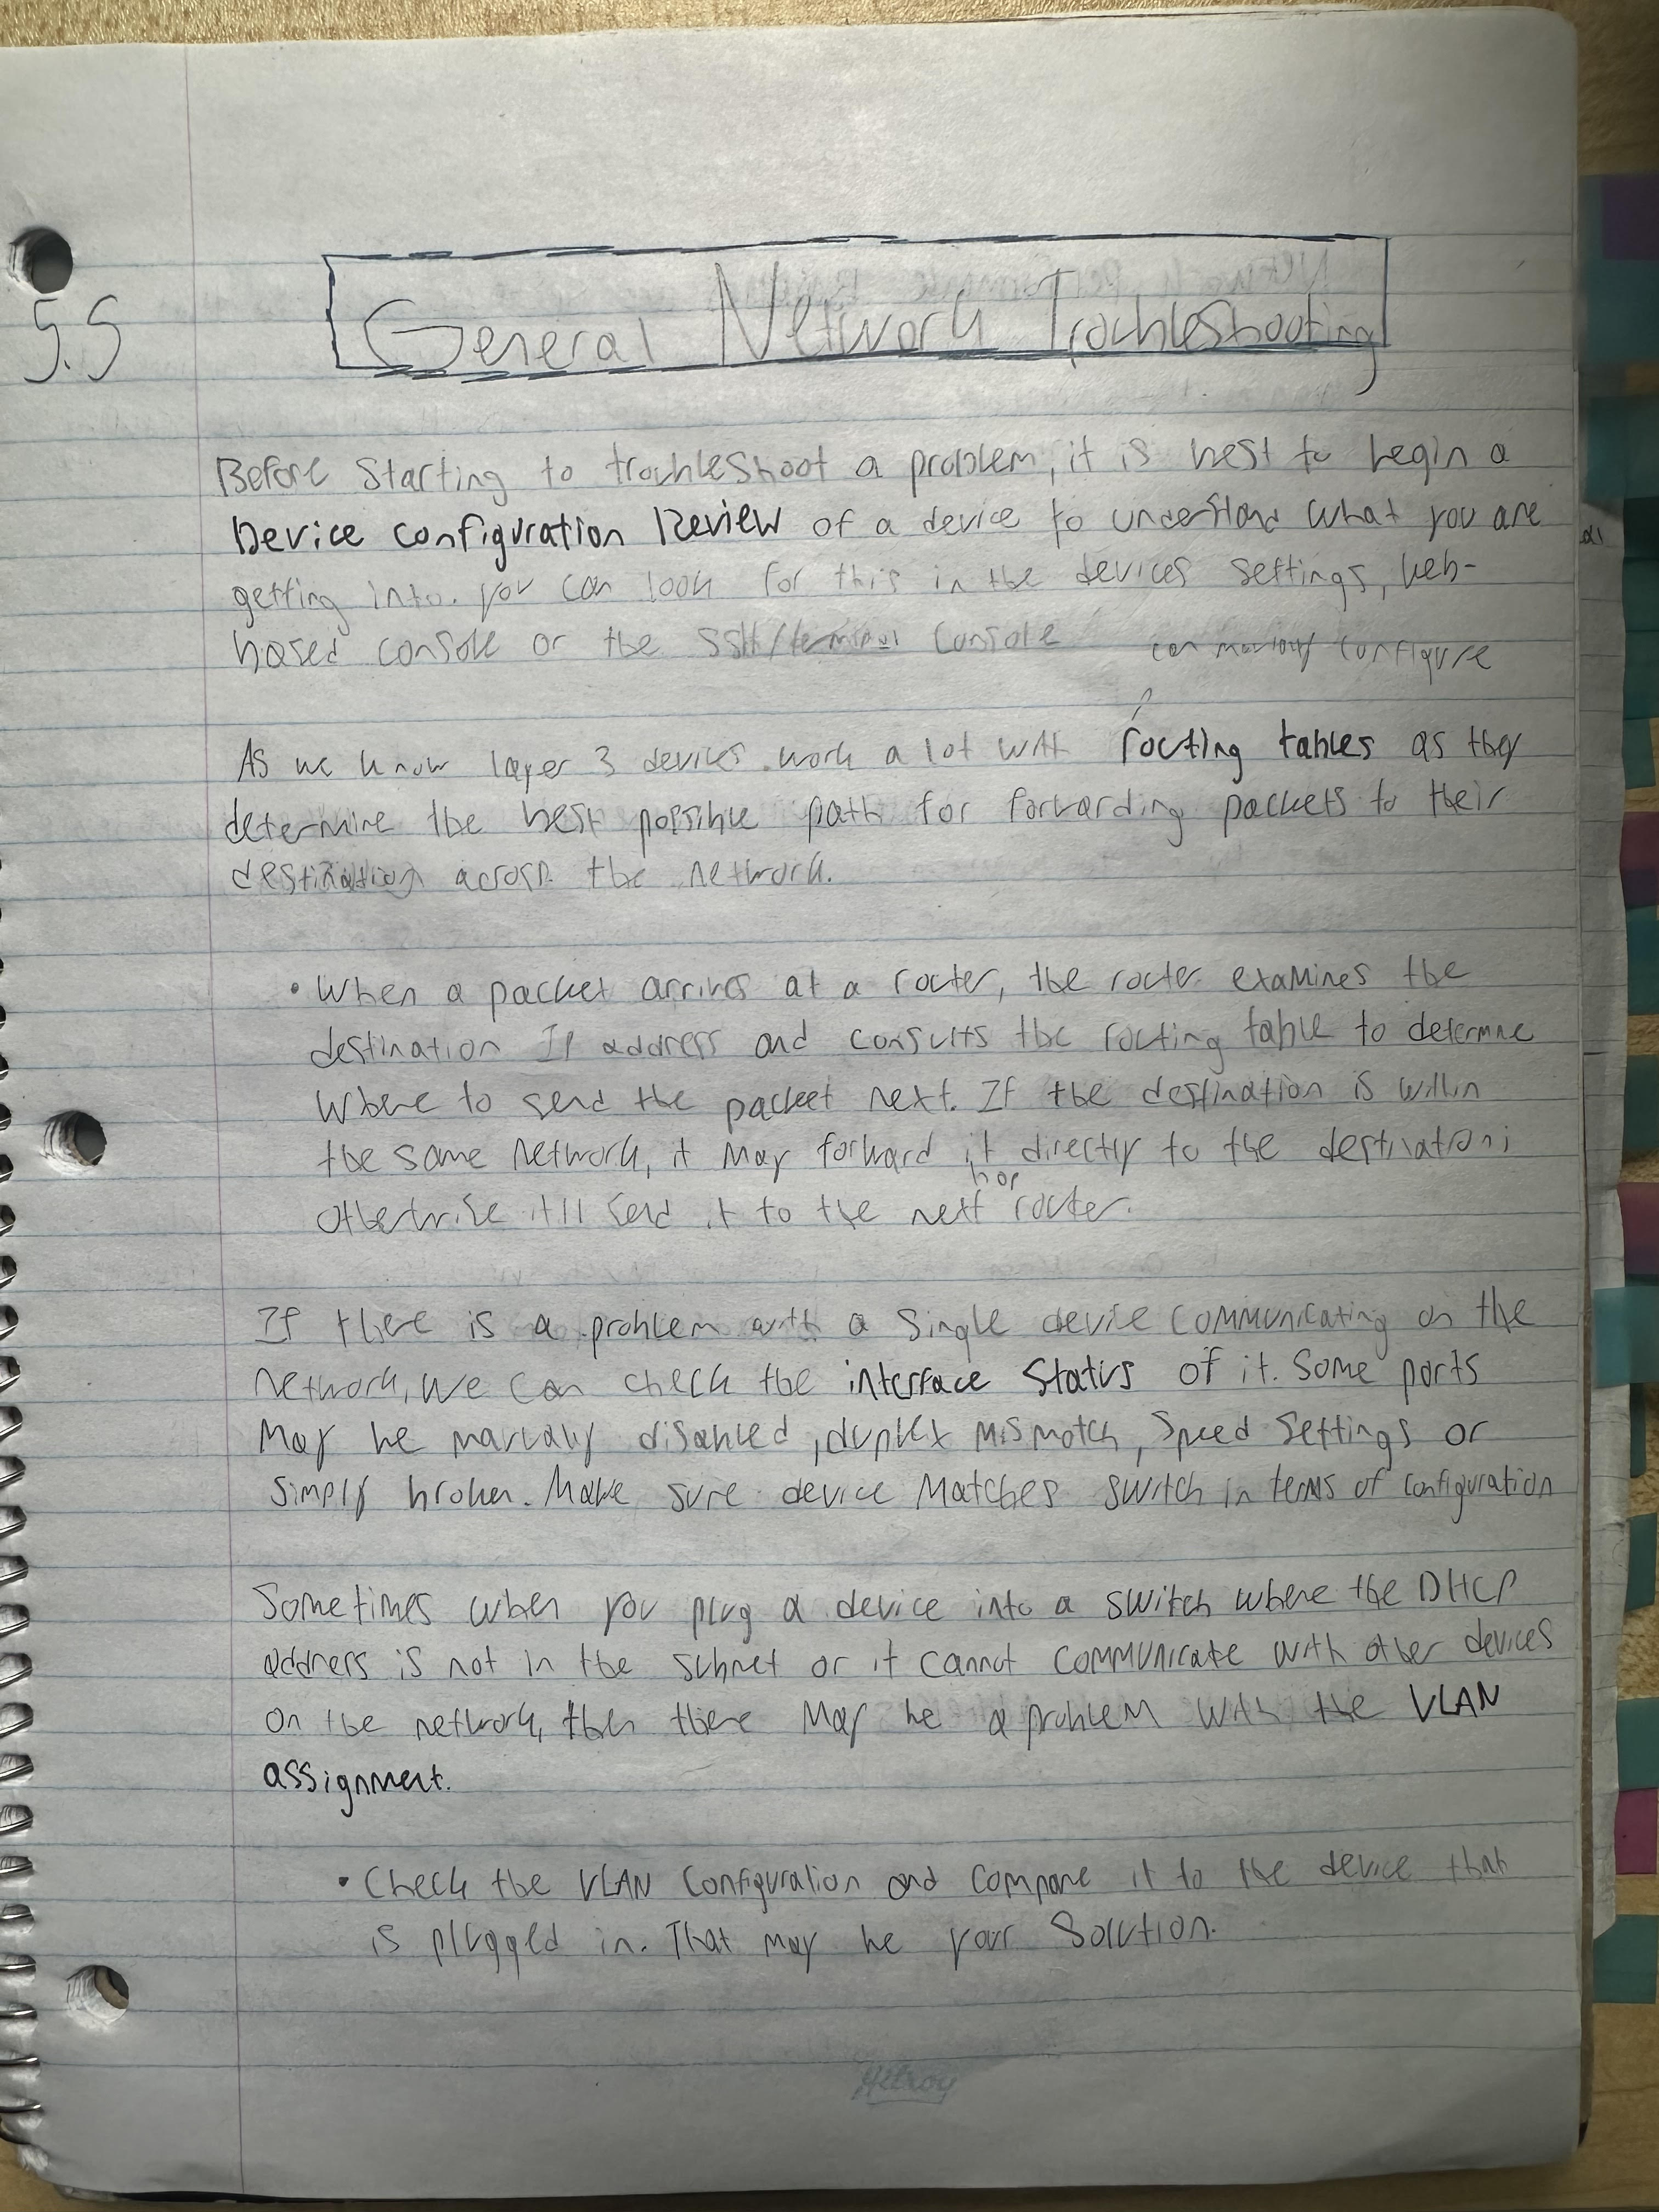 5.5
General Network Troubleshooting
Before starting to troubleshoot a problem, it is best to begin a
Device configuration Review of a device to understand what you are
getting into. you can look for this in the devices settings, web-
based console or the SSH/terminal console
can manually configure
As we know layer 3 devices work a lot with routing tables as they
determine the best possible path for forwarding packets to their
destination across the network.
• When a packet arrives at a router, the router examines the
destination IP address and consults the routing table to determine
where to send the packet next. If the destination is within
the same network, it may forward it directly to the destination;
hop
otherwise it'll send it to the next router.
If there is a problem with a single device communicating on the
network, we can check the interface status of it. Some ports
may be manually disabled, duplex mismatch, speed settings or
simply broken. Make sure device matches switch in terms of configuration
Sometimes when you plug a device into a switch where the DHCP
address is not in the subnet or it cannot communicate with other devices
on the network, then there may be a problem with the VLAN
assignment.
• Check the VLAN configuration and compare it to the device that
is plugged in. That may be your solution.
Hilroy